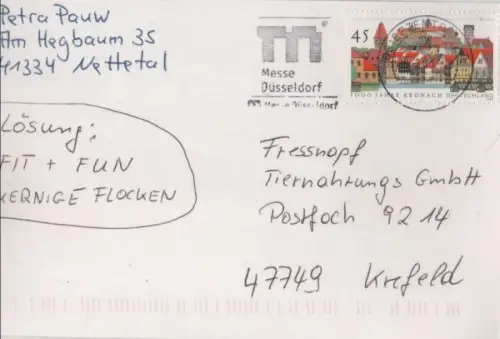 Petra Pauw
Am Hegbaum 35
41334 Nettetal
Lösung:
FIT + FUN
KERNIGE FLOCKEN
Messe
Düsseldorf
Messe Düsseldorf
45
1000 JAHRE KRONACH DEUTSCHLAND
Fressnapf
Tiernahrungs GmbH
Postfach 9214
47749 Krefeld